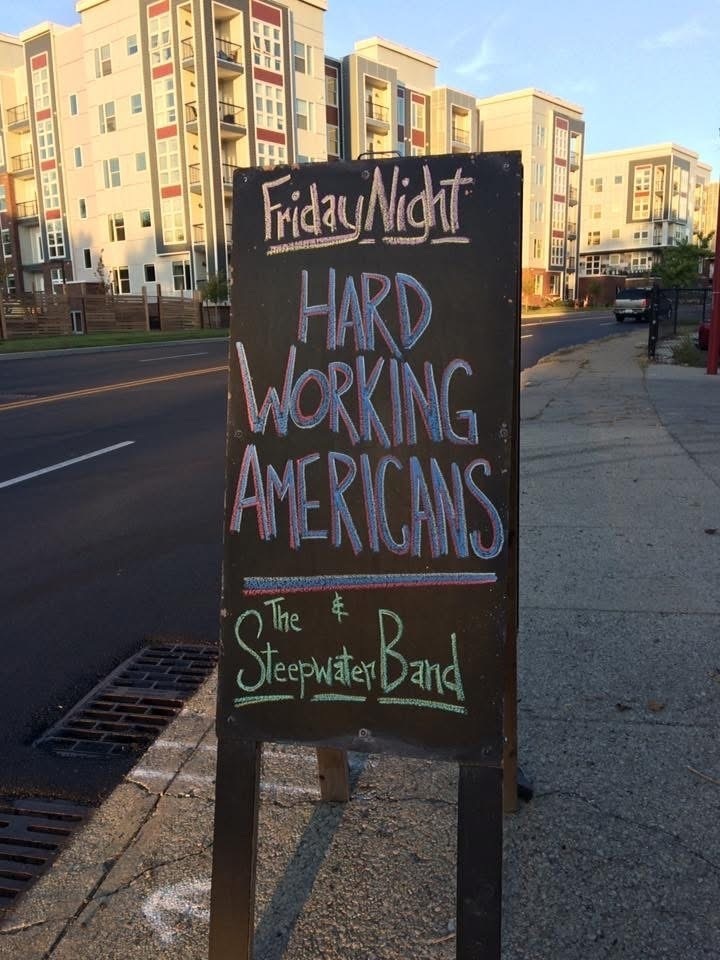 Friday Night
HARD
WORKING
AMERICANS
&
The
Steepwater Band